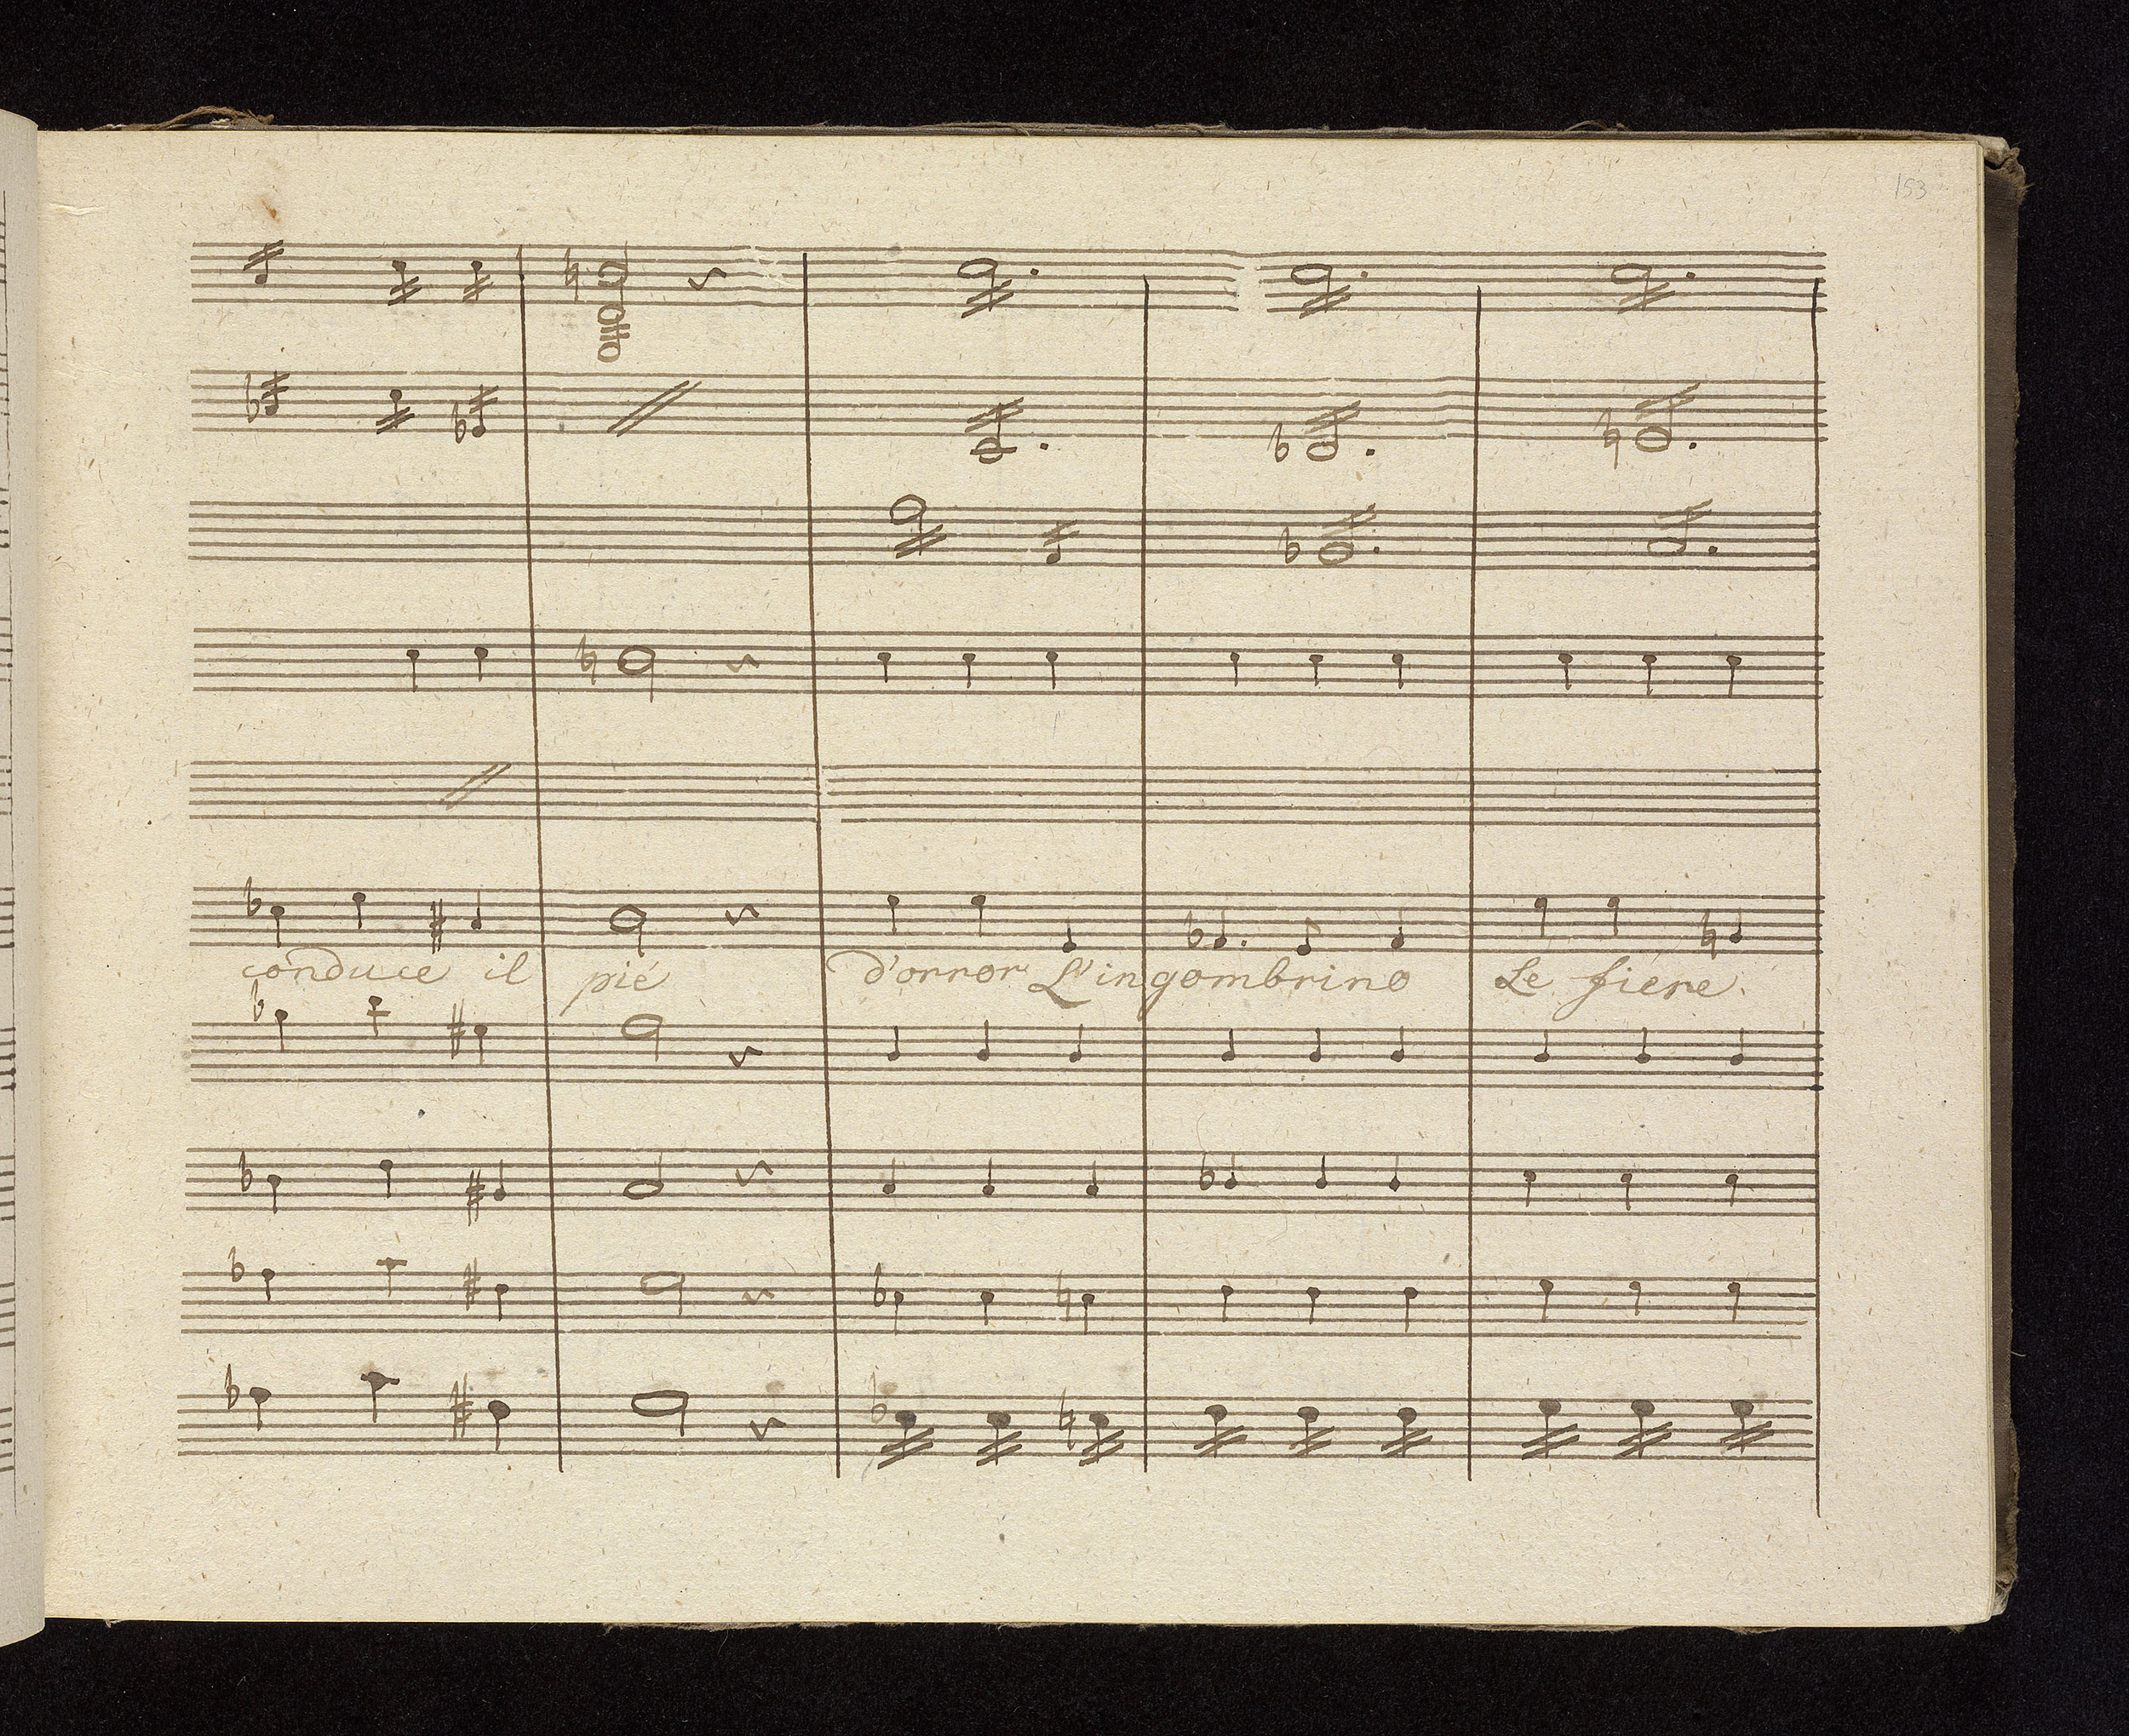 153
conduce il pié d'orror L'ingombrino Le fiere.